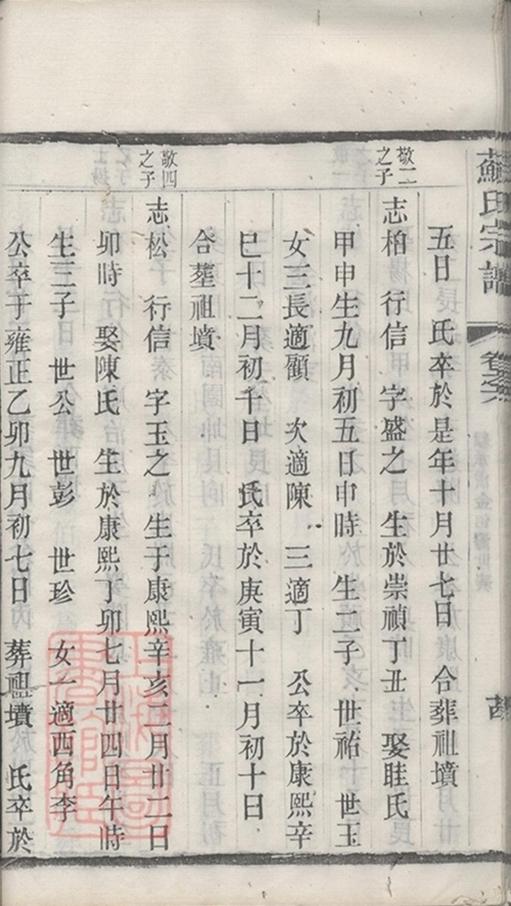 蘇氏宗譜
卷之六
五日 氏卒於是年十月廿七日 合葬祖墳
敬二之子
志栢 行信 字盛之 生於崇禎丁丑 娶眭氏
甲申生九月初五日申時 生二子 世祐 世玉
女三長適顧 次適陳 三適丁 公卒於康熙辛
巳十二月初千日 氏卒於庚寅十一月初十日
合塟祖墳
敬四之子
志松 行信 字玉之 生于康熙辛亥二月廿二日
卯時 娶陳氏 生於康熙丁卯七月廿四日午時
生三子 世公 世彭 世珍 女一適西角李
公卒于雍正乙卯九月初七日 葬祖墳 氏卒於